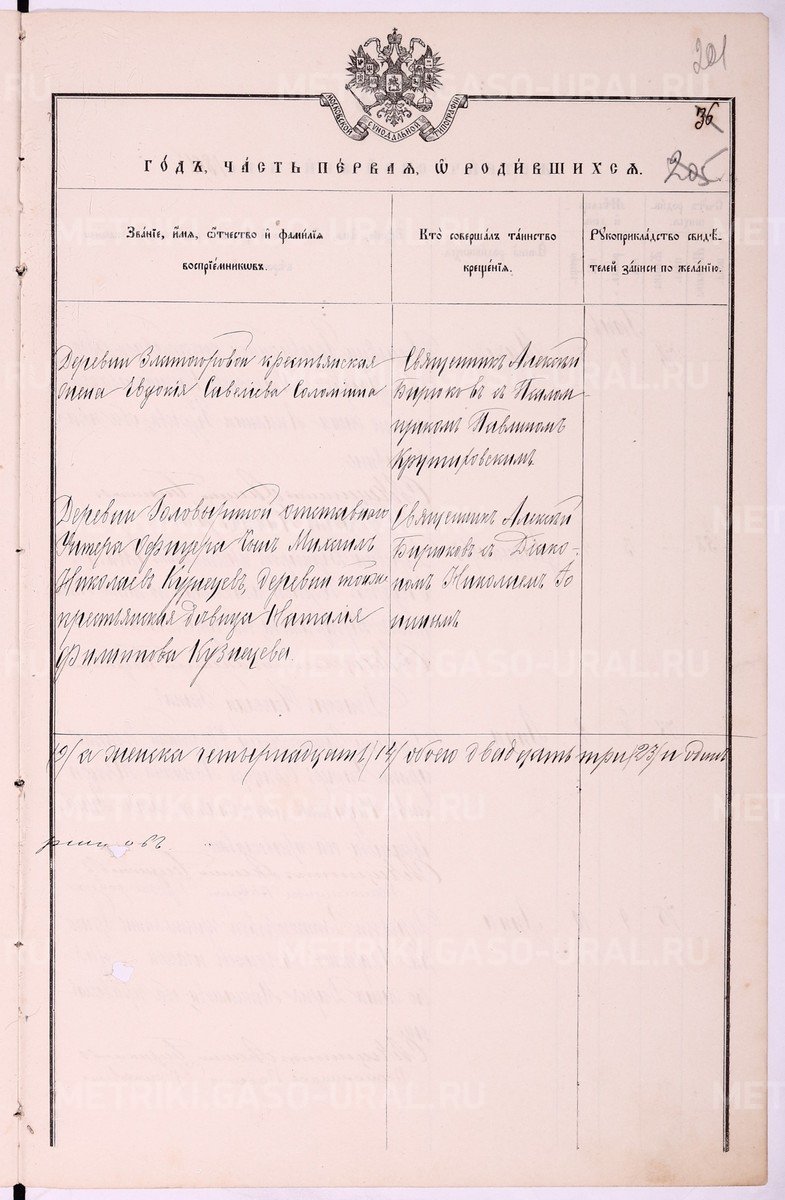 201
МОСКОВСКОЙ СѴНОДАЛЬНОЙ ТИПОГРАФІИ
36
205
ГО́ДЪ, ЧА́СТЬ ПЕ́РВАЯ, Ѡ҆ РОДИ́ВШИХСЯ.
Зва́нїе, и҆́мя, ѻ҆́тчество и҆ фами́лїя
воспрїе́мникѡвъ.
Кто̀ соверша́лъ та́инство
креще́нїя.
Рꙋкоприкла́дство свидѣ́-
телей за́писи по жела́нїю.
Деревни Златогоровой крестьянская
жена Евдокія Савеліева Соломина
Священникъ Алексѣй
Бирюковъ съ Псалом-
щикомъ Павлиномъ
Крутиховскимъ
Деревни Головыриной отставного
Унтера Офицера сынъ Михаилъ
Николаевъ Кузнецовъ, деревни тойже
крестьянская дѣвица Наталія
Филиппова Кузнецова.
Священникъ Алексѣй
Бирюковъ съ Діако-
номъ Николаемъ
(9) а женска четырнадцать (14) обоего двадцать три (23) и одинъ
METRIKI.GASO-URAL.RU